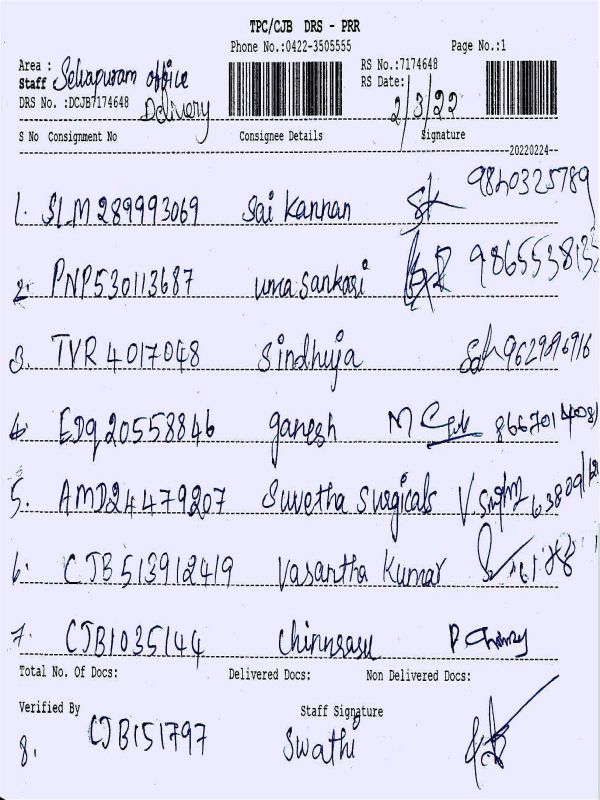 TPC/CJB DRS - PRR
Phone No.:0422-3505555 Page No.:1
Area : Selvapuram office RS No.:7174648
Staff Delivery RS Date: 2/3/22
DRS No. :DCJB7174648
S No Consignment No Consignee Details Signature
20220224
1. SLM 289993069 Sai Kannan 9840325789
2. PNP530113687 uma Sankari
3. TVR 4017048 Sindhuja
4. EDQ20558846 ganesh
5. AMD24479207 Suvetha Surgicals
6. CJB513912419 Vasantha Kumar
7. CJB1035144
Total No. Of Docs: Delivered Docs: Non Delivered Docs:
Verified By Staff Signature
8. CJB151797 Swathi